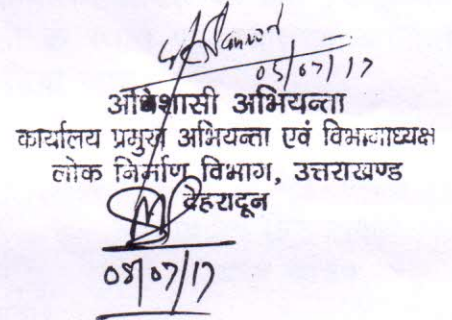 05/07/17
अधिशासी अभियन्ता
कार्यालय प्रमुख अभियन्ता एवं विभागाध्यक्ष
लोक निर्माण विभाग, उत्तराखण्ड
देहरादून
05/07/17